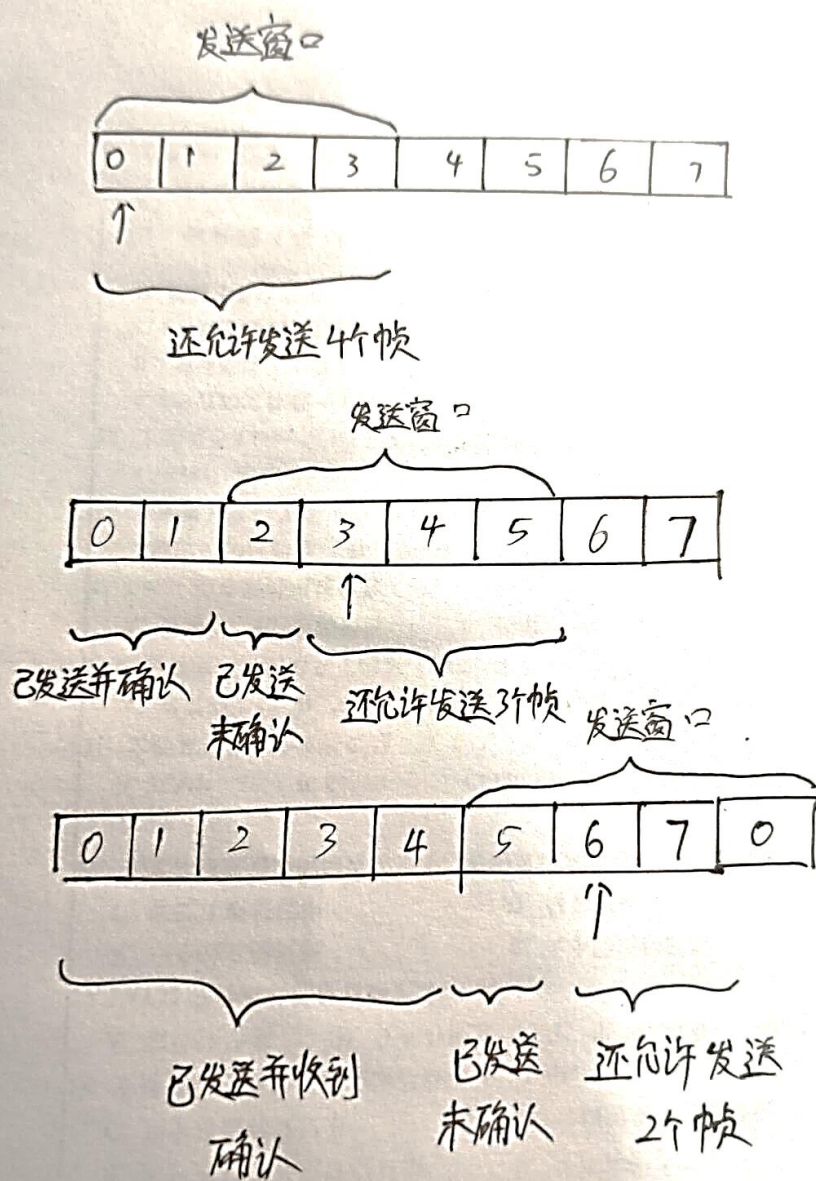 发送窗口
0 1 2 3 4 5 6 7
还允许发送4个帧
发送窗口
0 1 2 3 4 5 6 7
已发送并确认 已发送 还允许发送3个帧
未确认
发送窗口
0 1 2 3 4 5 6 7 0
已发送并收到 已发送 还允许发送
确认 未确认 2个帧